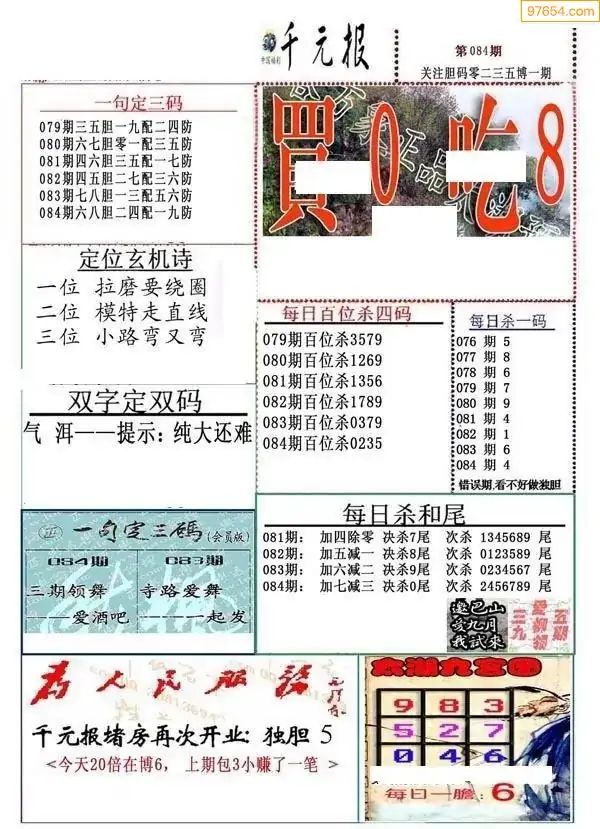 97654.com
中国福彩
千元报
第084期
关注胆码零二三五博一期
一句定三码
079期三五胆一九配二四防
080期六七胆零一配三五防
081期四六胆三五配一七防
082期四五胆二七配三六防
083期七八胆一三配五六防
084期六八胆二四配一九防
買0 吃8
定位玄机诗
一位 拉磨要绕圈
二位 模特走直线
三位 小路弯又弯
每日百位杀四码
079期百位杀3579
080期百位杀1269
081期百位杀1356
082期百位杀1789
083期百位杀0379
084期百位杀0235
每日杀一码
076 期 5
077 期 8
078 期 6
079 期 7
080 期 9
081 期 4
082 期 1
083 期 6
084 期 4
错误期,看不好做独胆
双字定双码
气 洱——提示:纯大还难
一句定三碼(会员版)
084期
三期领舞
——爱酒吧
083期
寺路爱舞
——起发
每日杀和尾
081期: 加四除零 决杀7尾 次杀 1345689 尾
082期: 加五减一 决杀8尾 次杀 0123589 尾
083期: 加六减二 决杀9尾 次杀 0234567 尾
084期: 加七减三 决杀0尾 次杀 2456789 尾
邀巴山
亥九月
我試來
为人民服务
千元报堵房再次开业: 独胆 5
<今天20倍在博6, 上期包3小赚了一笔 >
太湖九宫图
9 8 3
5 2 7
0 4 6
每日一胆: 6